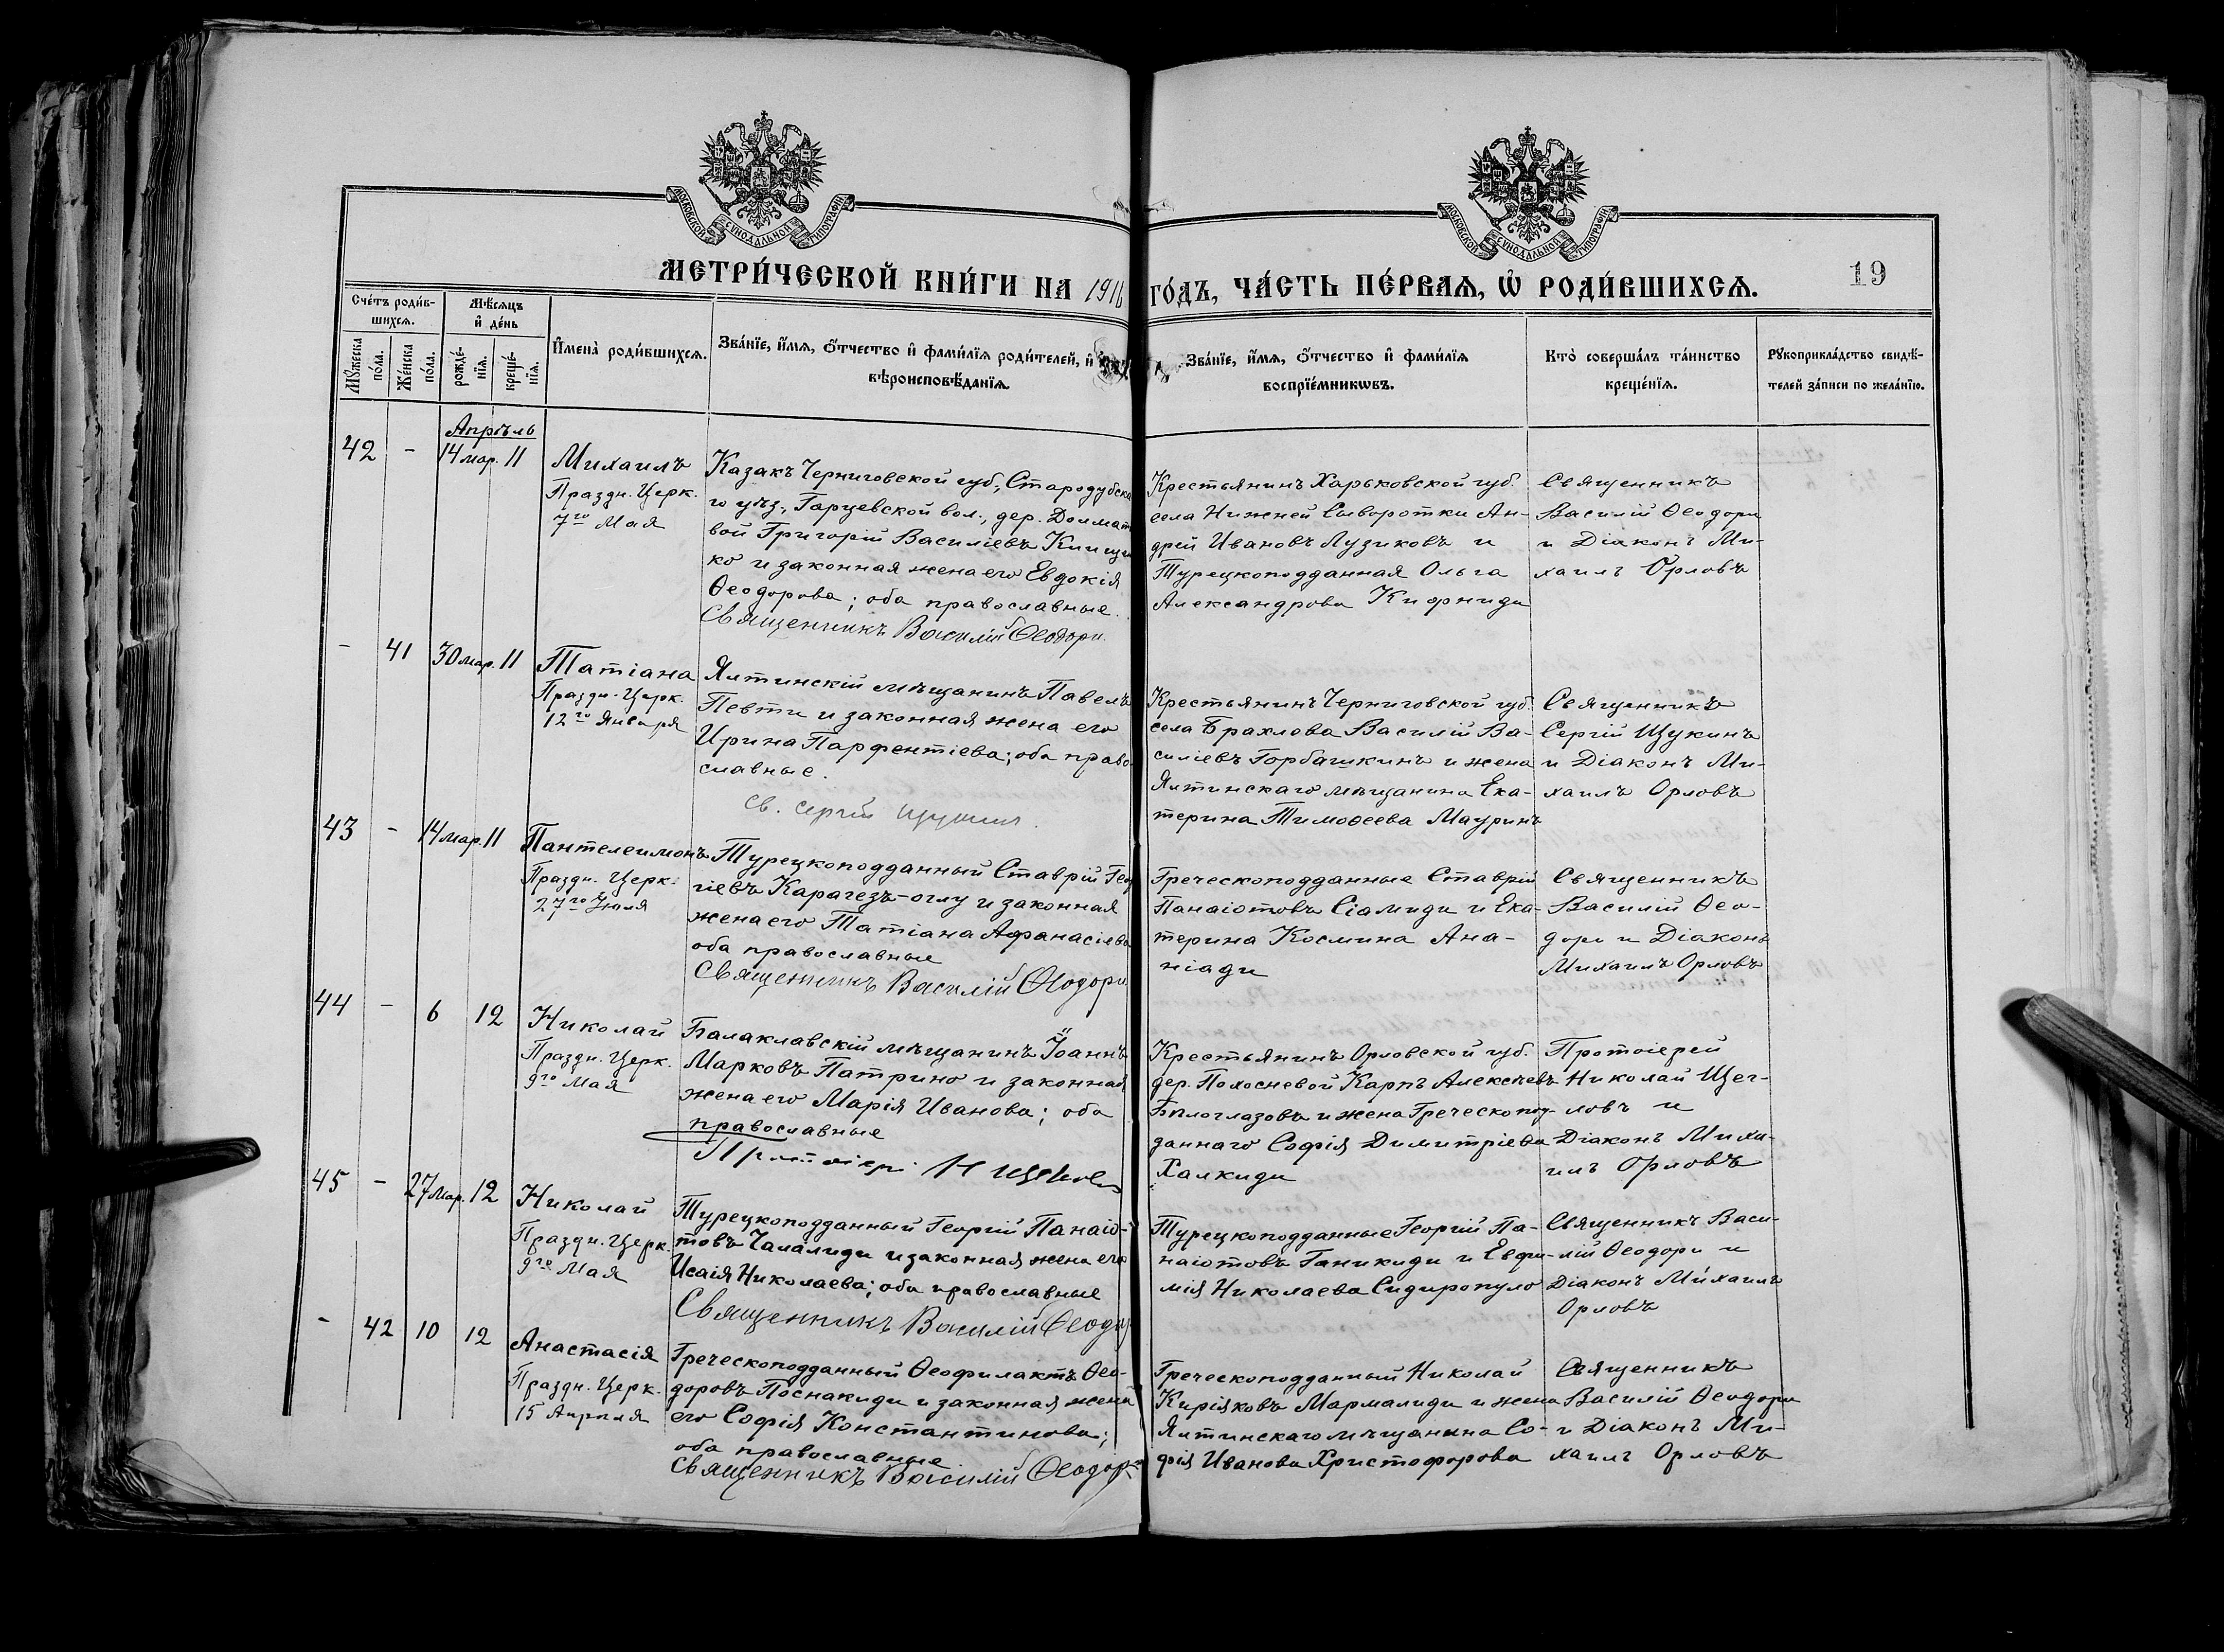 МОСКОВСКОЙ СУНОДАЛЬНОЙ ТИПОГРАФІИ
МОСКОВСКОЙ СУНОДАЛЬНОЙ ТИПОГРАФІИ
МЕТРИ́ЧЕСКОЙ КНИ́ГИ НА 1916 ГО́ДЪ, ЧА́СТЬ ПЕ́РВАѦ, Ѡ РОДИ́ВШИХСѦ.
19
Сче́тъ роди́в-
шихсѧ.
Мꙋ́жеска по́ла.
Же́нска по́ла.
Мѣ́сѧцъ
и҆ де́нь
рожде́-
нїѧ.
креще́-
нїѧ.
И҆мена̀ роди́вшихсѧ.
Зва́нїе, и҆́мѧ, ѻ҆́тчество и҆ фами́лїѧ роди́телей, и҆
вѣроисповѣ́данїѧ.
Зва́нїе, и҆́мѧ, ѻ҆́тчество и҆ фами́лїѧ
воспрїе́мникѡвъ.
Кто̀ соверша́лъ та́инство
креще́нїѧ.
Рꙋкоприкла́дство свидѣ́-
телей за́писи по жела́нїю.
Апрѣль
42 - 14 мар. 11
Михаилъ
Праздн. Церк.
7го Мая
Казакъ Черниговской губ., Стародубска
го уѣз., Гарцевской вол., дер. Долмат
вой Григорій Василіевъ Книщен
ко и законная жена его Евдокія
Ѳеодорова; оба православные.
Священникъ Василій Ѳеодори.
Крестьянинъ Харьковской губ.
села Нижней Сыворотки Ан-
дрей Ивановъ Лузиковъ и
Турецкоподданная Ольга
Александрова Кифниди
Священникъ
Василій Ѳеодори
и Діаконъ Ми-
хаилъ Орловъ
- 41 30 мар. 11
Татіана
Праздн. Церк.
12го Января
Ялтинскій мѣщанинъ Павелъ
Певти и законная жена его
Ирина Парфентіева; оба право-
славные.
Св. Сергій Щукинъ
Крестьянинъ Черниговской губ.
села Брахлова Василій Ва-
силіевъ Горбашкинъ и жена
Ялтинскаго мѣщанина Ека-
терина Тимоѳеева Мауринъ
Священникъ
Сергій Щукинъ
и Діаконъ Ми-
хаилъ Орловъ
43 - 14 мар. 11
Пантелеимонъ
Праздн. Церк.
27го Іюля
Турецкоподданный Ставрій Геор
гіевъ Карагезъ-оглу и законная
жена его Татіана Афанасіева
оба православные
Священникъ Василій Ѳеодори
Греческоподданные Ставрій
Панаіотовъ Сіамиди и Ека-
терина Космина Ана-
ніади
Священникъ
Василій Ѳео-
дори и Діаконъ
Михаилъ Орловъ
44 - 6 12
Николай
Праздн. Церк.
9го Мая
Балаклавскій мѣщанинъ Іоаннъ
Марковъ Патрино и законная
жена его Марія Иванова; оба
православные
Протоіер. Н Щегловъ
Крестьянинъ Орловской губ.
дер. Полосневой Карпъ Алексѣевъ
Бѣлоглазовъ и жена Греческопод-
даннаго Софія Димитріева
Халкиди
Протоіерей
Николай Щег-
ловъ и
Діаконъ Миха-
илъ Орловъ
45 - 27 Мар. 12
Николай
Праздн. Церк.
9го Мая
Турецкоподданный Георгій Панаіо-
товъ Чалалиди и законная жена его
Исаія Николаева; оба православные
Священникъ Василій Ѳеодори
Турецкоподданные Георгій Па-
наіотовъ Ганикиди и Евфи-
мія Николаева Сидиропуло
Священникъ Васи-
лій Ѳеодори и
Діаконъ Михаилъ
Орловъ
- 42 10 12
Анастасія
Праздн. Церк.
15 Апрѣля
Греческоподданный Ѳеофилактъ Ѳео-
доровъ Поснакиди и законная жена
его Софія Константинова;
оба православные
Священникъ Василій Ѳеодори
Греческоподданный Николай
Киріяковъ Мармалиди и жена
Ялтинскаго мѣщанина Со-
фія Иванова Христофорова
Священникъ
Василій Ѳеодори
и Діаконъ Ми-
хаилъ Орловъ